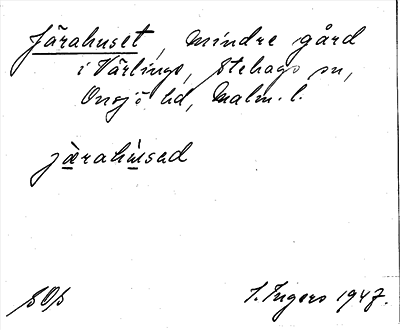 Järahuset, mindre gård
i Värlinge, Stehags sn,
Onsjö hd, Malm. l.
järahu̇səd
I. Ingers 1947.